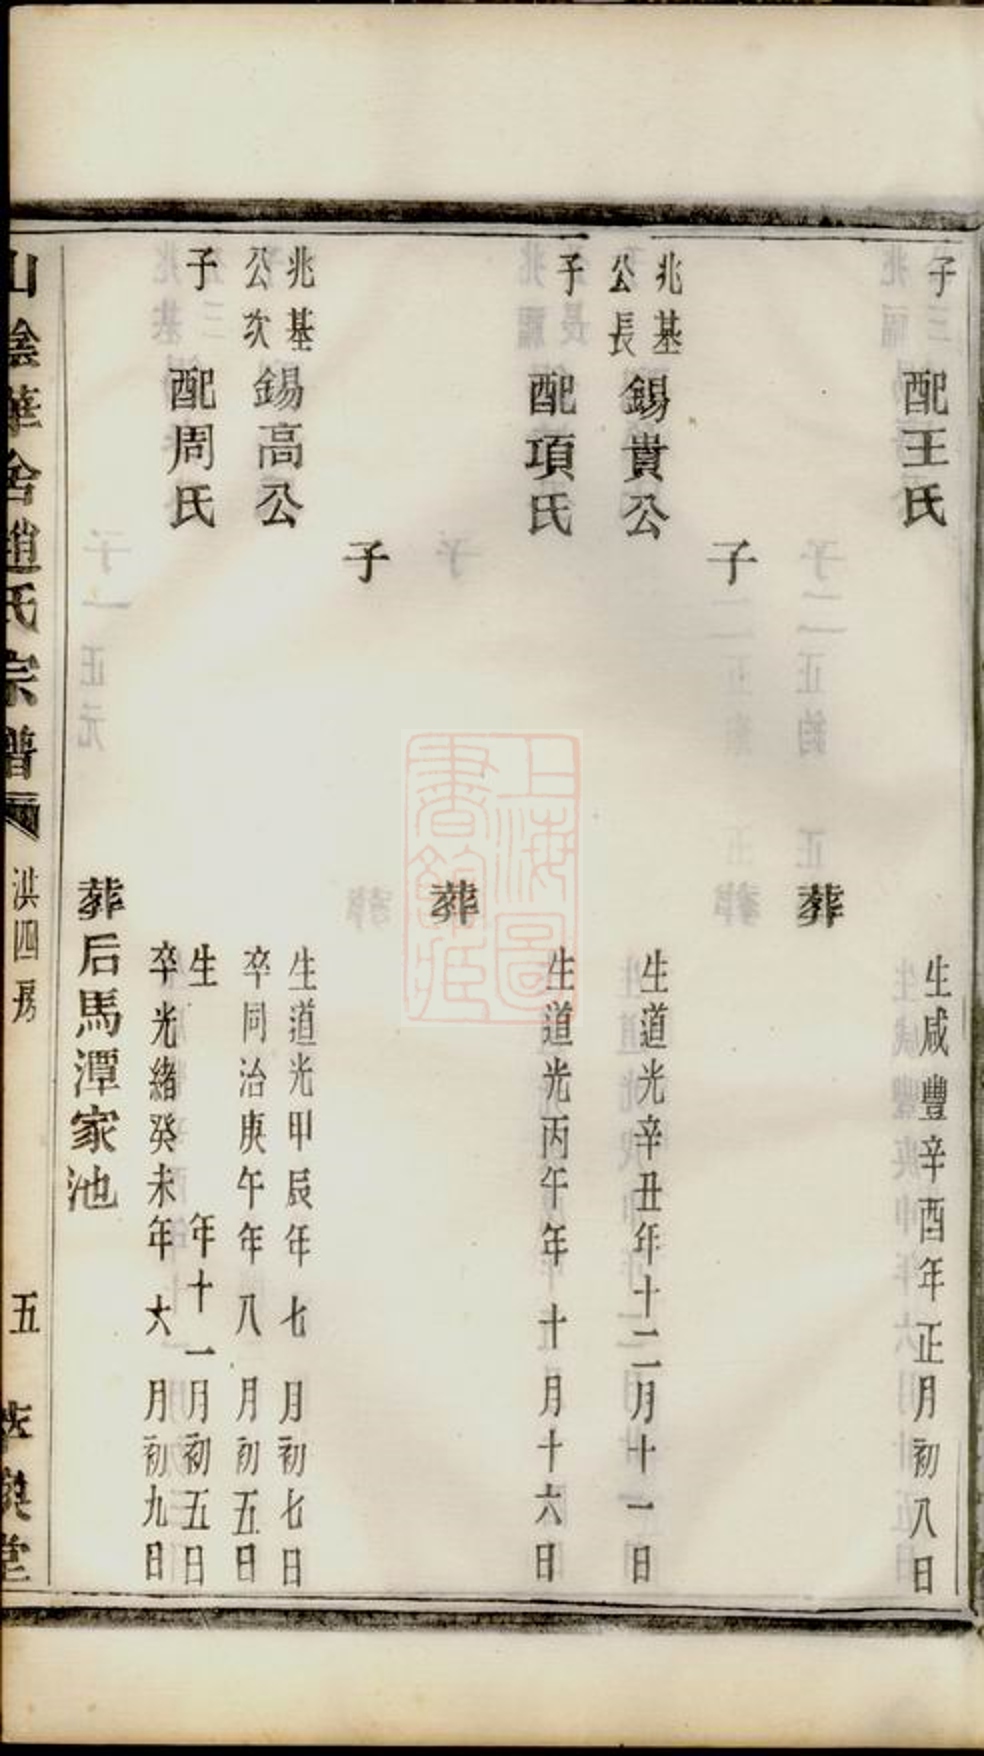 子 配王氏 生咸豐辛酉年正月初八日
子 葬
兆基公長子 錫貴公 生道光辛丑年十二月十一日
配項氏 生道光丙午年十月十六日
子 葬
兆基公次子 錫高公 生道光甲辰年七月初七日
卒同治庚午年八月初五日
配周氏 生 年十一月初五日
卒光緒癸未年六月初九日
葬后馬潭家池
山陰華舍趙氏宗譜 洪四房 五 堂
上海圖書館藏